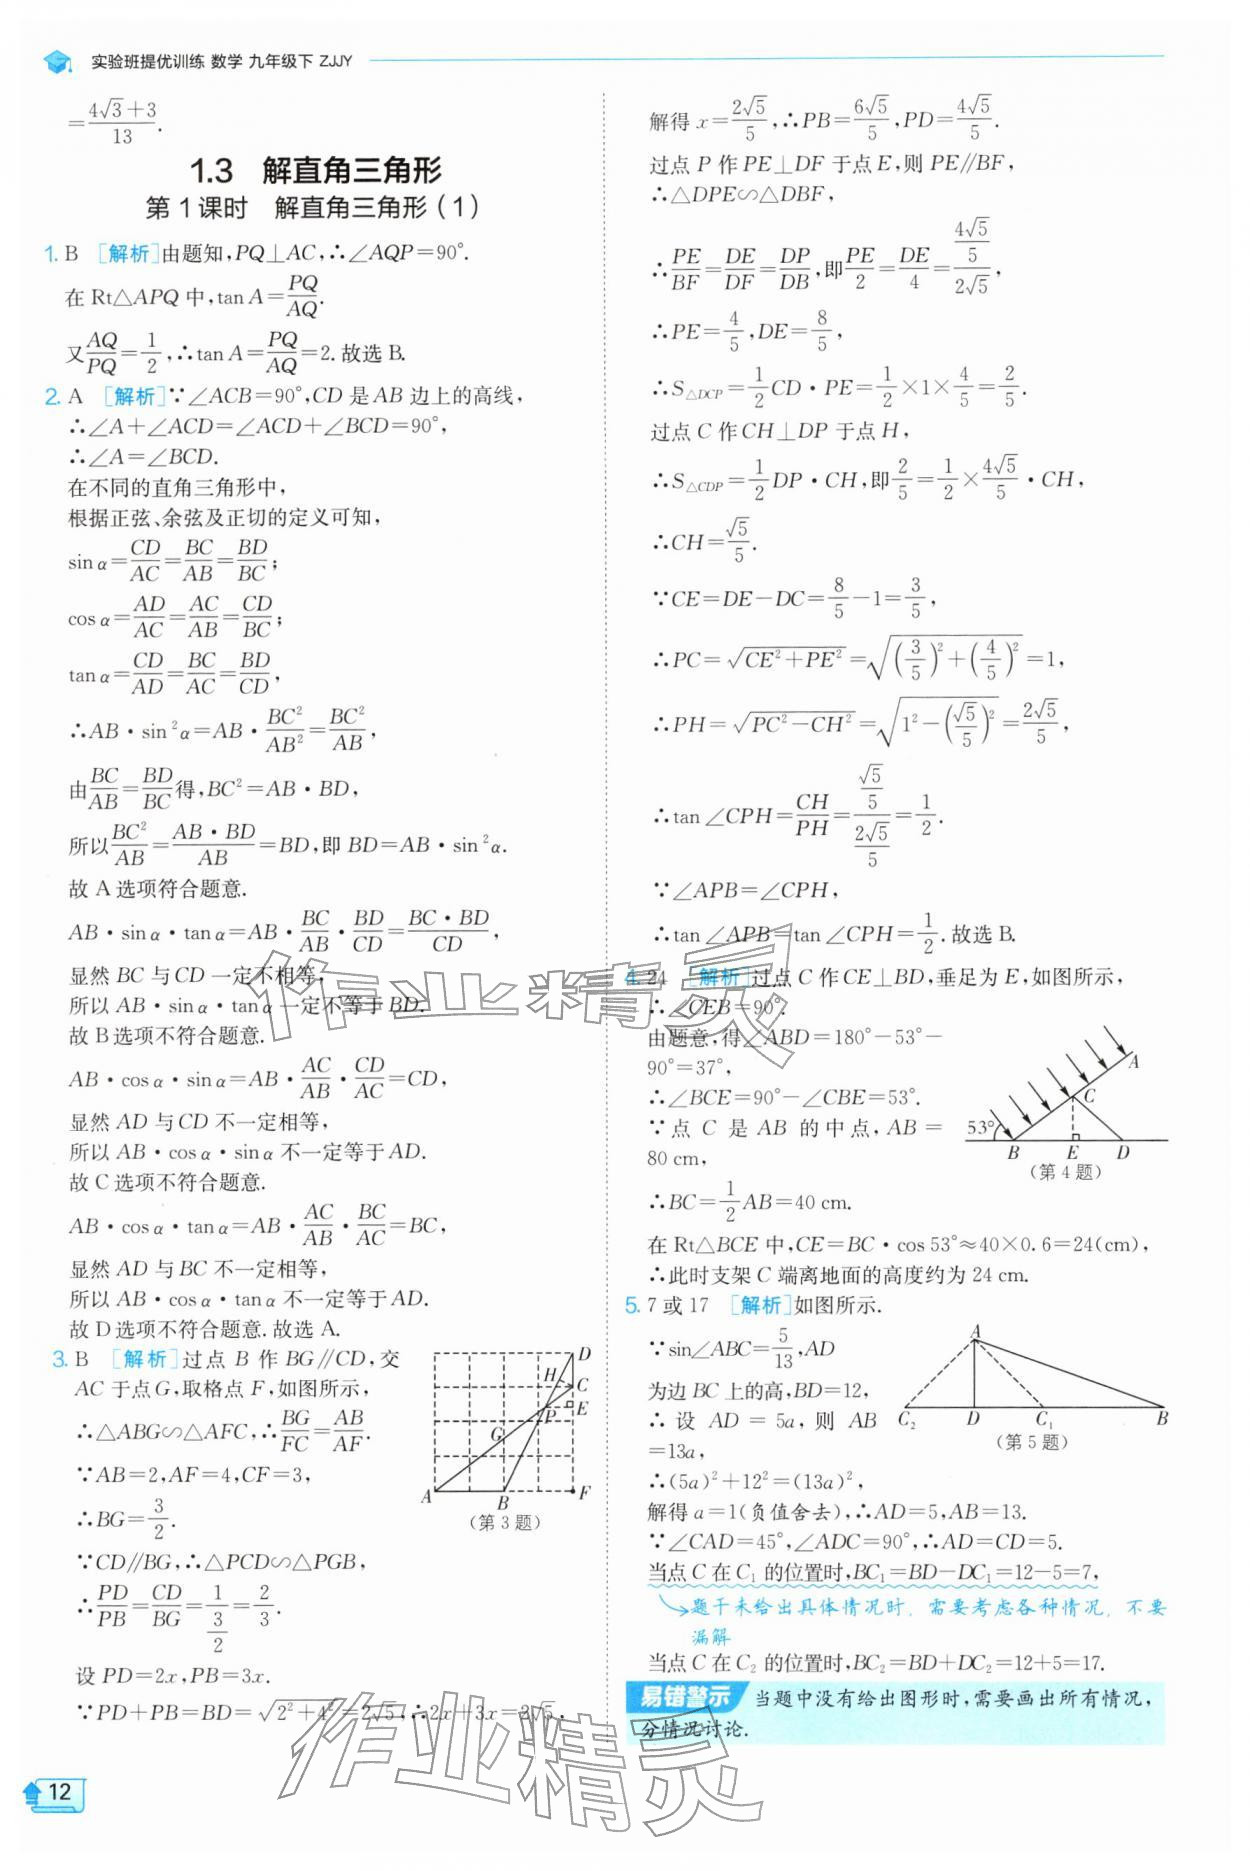 实验班提优训练 数学 九年级下 ZJJY
=\frac{4\sqrt{3}+3}{13}.
1.3 解直角三角形
第 1 课时 解直角三角形(1)
1. B [解析]由题知,PQ⊥AC,∴∠AQP=90°.
在 Rt△APQ 中,tan A=\frac{PQ}{AQ}.
又\frac{AQ}{PQ}=\frac{1}{2},∴tan A=\frac{PQ}{AQ}=2.故选 B.
2. A [解析]∵∠ACB=90°,CD 是 AB 边上的高线,
∴∠A+∠ACD=∠ACD+∠BCD=90°,
∴∠A=∠BCD.
在不同的直角三角形中,
根据正弦、余弦及正切的定义可知,
sin α=\frac{CD}{AC}=\frac{BC}{AB}=\frac{BD}{BC};
cos α=\frac{AD}{AC}=\frac{AC}{AB}=\frac{CD}{BC};
tan α=\frac{CD}{AD}=\frac{BC}{AC}=\frac{BD}{CD},
∴AB·sin²α=AB·\frac{BC²}{AB²}=\frac{BC²}{AB},
由\frac{BC}{AB}=\frac{BD}{BC}得,BC²=AB·BD,
所以\frac{BC²}{AB}=\frac{AB·BD}{AB}=BD,即 BD=AB·sin²α.
故 A 选项符合题意.
AB·sin α·tan α=AB·\frac{BC}{AB}·\frac{BD}{CD}=\frac{BC·BD}{CD},
显然 BC 与 CD 一定不相等,
所以 AB·sin α·tan α 一定不等于 BD.
故 B 选项不符合题意.
AB·cos α·sin α=AB·\frac{AC}{AB}·\frac{CD}{AC}=CD,
显然 AD 与 CD 不一定相等,
所以 AB·cos α·sin α 不一定等于 AD.
故 C 选项不符合题意.
AB·cos α·tan α=AB·\frac{AC}{AB}·\frac{BC}{AC}=BC,
显然 AD 与 BC 不一定相等,
所以 AB·cos α·tan α 不一定等于 AD.
故 D 选项不符合题意.故选 A.
3. B [解析]过点 B 作 BG∥CD,交
AC 于点 G,取格点 F,如图所示,
∴△ABG∽△AFC,∴\frac{BG}{FC}=\frac{AB}{AF}.
∵AB=2,AF=4,CF=3,
∴BG=\frac{3}{2}.
∵CD∥BG,∴△PCD∽△PGB,
∴\frac{PD}{PB}=\frac{CD}{BG}=\frac{1}{\frac{3}{2}}=\frac{2}{3}.
设 PD=2x,PB=3x.
∵PD+PB=BD=\sqrt{2²+4²}=2\sqrt{5},∴2x+3x=2\sqrt{5},
D
H
C
E
P
G
A
B
F
(第 3 题)
12
解得 x=\frac{2\sqrt{5}}{5},∴PB=\frac{6\sqrt{5}}{5},PD=\frac{4\sqrt{5}}{5}.
过点 P 作 PE⊥DF 于点 E,则 PE∥BF,
∴△DPE∽△DBF,
∴\frac{PE}{BF}=\frac{DE}{DF}=\frac{DP}{DB},即\frac{PE}{2}=\frac{DE}{4}=\frac{\frac{4\sqrt{5}}{5}}{2\sqrt{5}},
∴PE=\frac{4}{5},DE=\frac{8}{5},
∴S△DCP=\frac{1}{2}CD·PE=\frac{1}{2}×1×\frac{4}{5}=\frac{2}{5}.
过点 C 作 CH⊥DP 于点 H,
∴S△CDP=\frac{1}{2}DP·CH,即\frac{2}{5}=\frac{1}{2}×\frac{4\sqrt{5}}{5}·CH,
∴CH=\frac{\sqrt{5}}{5}.
∵CE=DE-DC=\frac{8}{5}-1=\frac{3}{5},
∴PC=\sqrt{CE²+PE²}=\sqrt{(\frac{3}{5})²+(\frac{4}{5})²}=1,
∴PH=\sqrt{PC²-CH²}=\sqrt{1²-(\frac{\sqrt{5}}{5})²}=\frac{2\sqrt{5}}{5},
∴tan∠CPH=\frac{CH}{PH}=\frac{\frac{\sqrt{5}}{5}}{\frac{2\sqrt{5}}{5}}=\frac{1}{2}.
∵∠APB=∠CPH,
∴tan∠APB=tan∠CPH=\frac{1}{2}.故选 B.
4. 24 [解析]过点 C 作 CE⊥BD,垂足为 E,如图所示,
∴∠CEB=90°.
由题意,得∠ABD=180°-53°-
90°=37°,
∴∠BCE=90°-∠CBE=53°.
∵点 C 是 AB 的中点,AB=
80 cm,
∴BC=\frac{1}{2}AB=40 cm.
A
C
53°
B
E
D
(第 4 题)
在 Rt△BCE 中,CE=BC·cos 53°≈40×0.6=24(cm),
∴此时支架 C 端离地面的高度约为 24 cm.
5. 7 或 17 [解析]如图所示.
∵sin∠ABC=\frac{5}{13},AD
为边 BC 上的高,BD=12,
∴设 AD=5a,则 AB
=13a,
∴(5a)²+12²=(13a)²,
A
C₂
D
C₁
B
(第 5 题)
解得 a=1(负值舍去),∴AD=5,AB=13.
∵∠CAD=45°,∠ADC=90°,∴AD=CD=5.
当点 C 在 C₁ 的位置时,BC₁=BD-DC₁=12-5=7,
题干未给出具体情况时,需要考虑各种情况,不要
漏解
当点 C 在 C₂ 的位置时,BC₂=BD+DC₂=12+5=17.
易错警示 当题中没有给出图形时,需要画出所有情况,
分情况讨论.
作业精灵
作业精灵